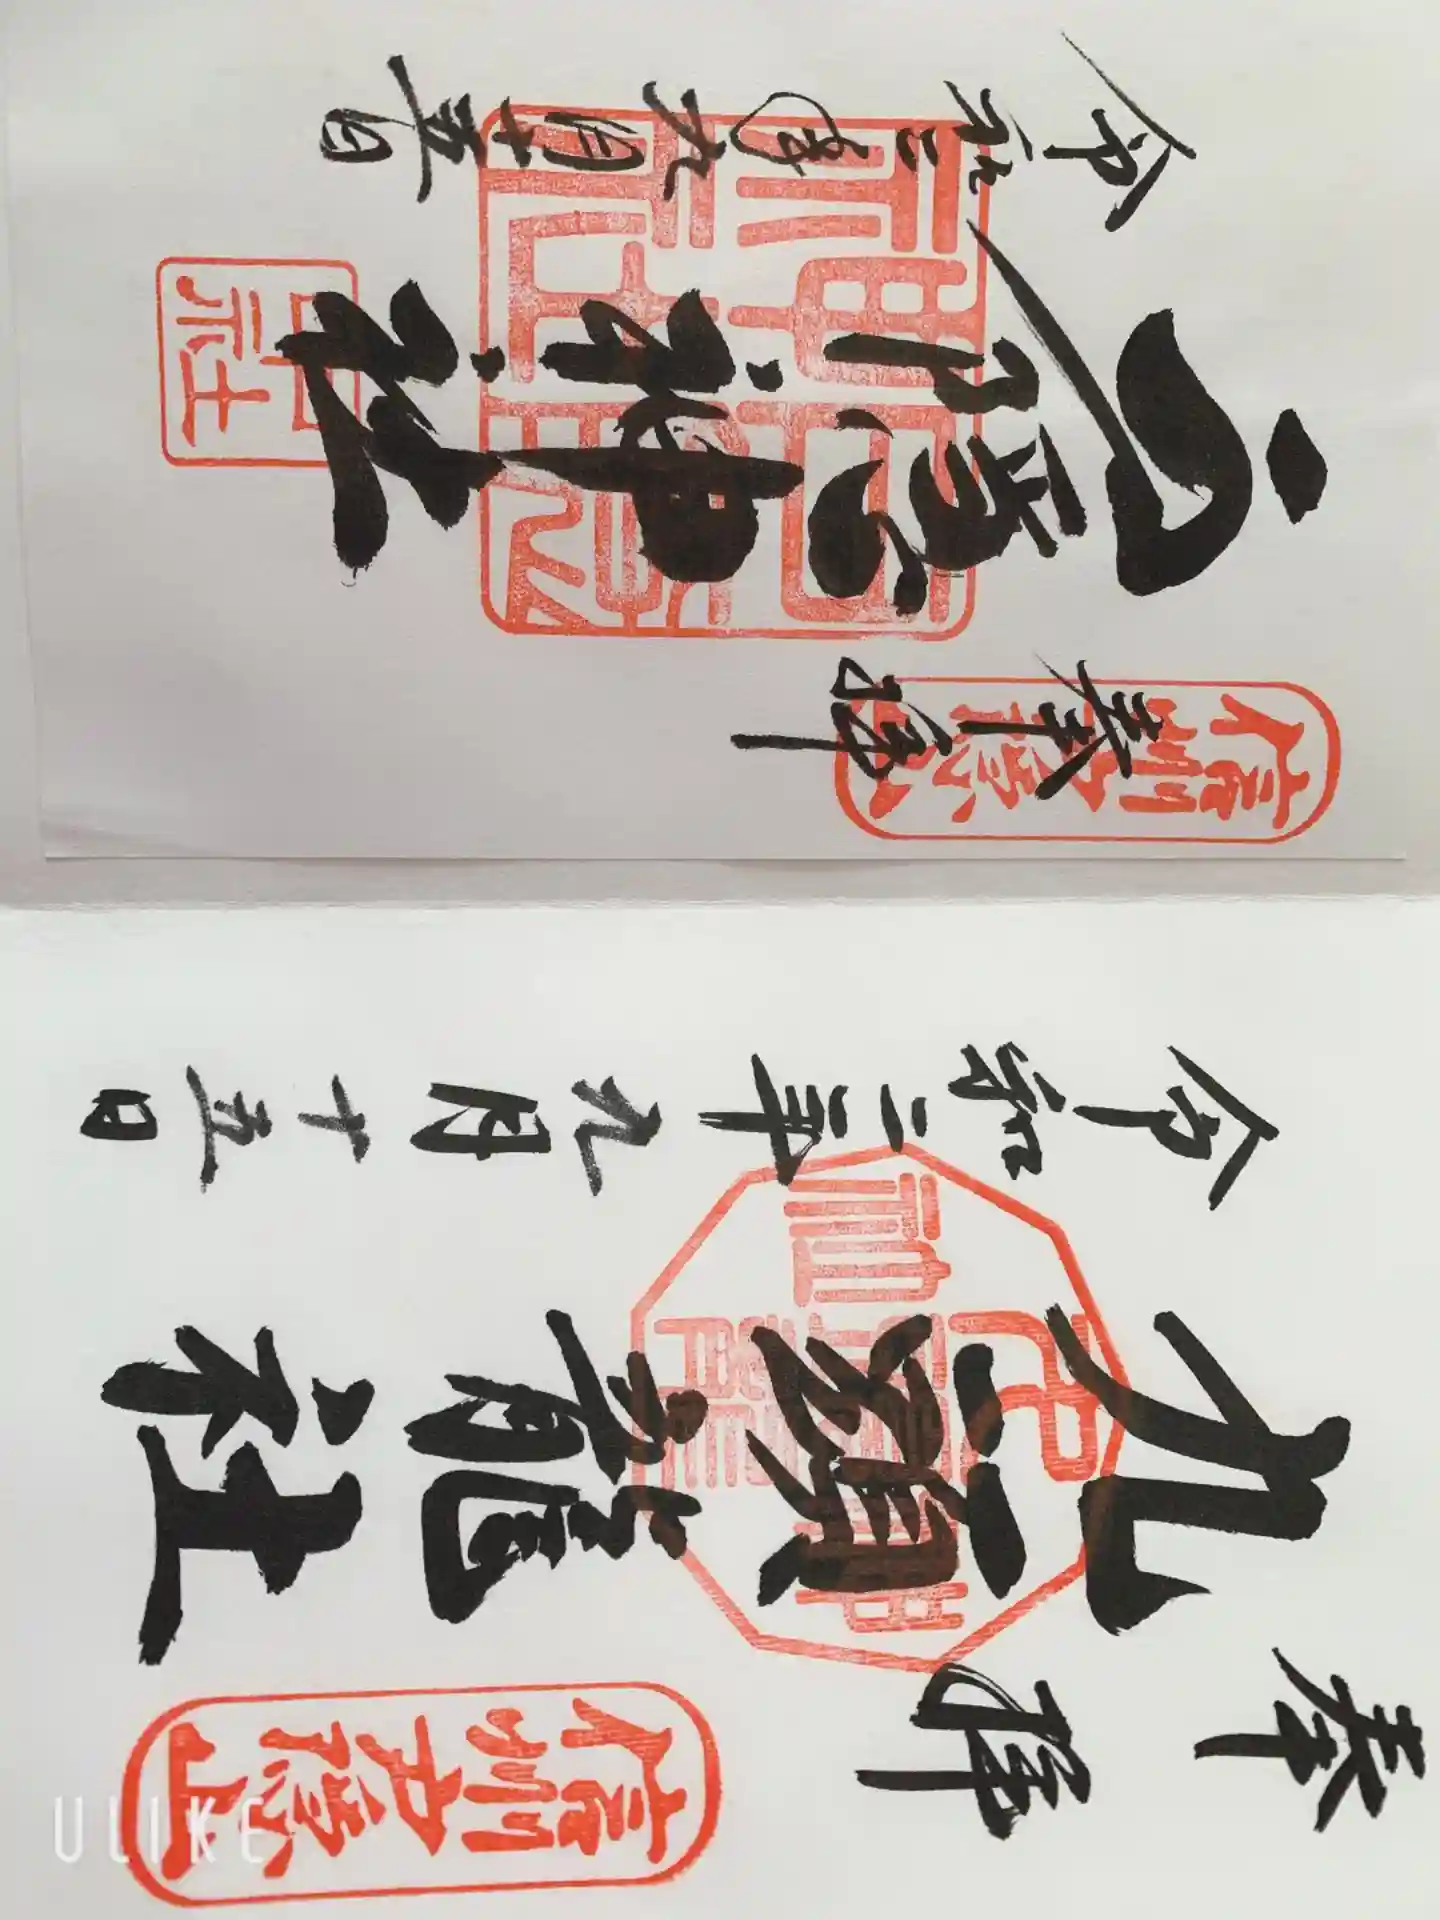 奉拝
信州戸隠山
戸隠神社
中社
令和二年九月十五日
奉拝
信州戸隠山
九頭龍社
令和二年九月十五日
ULIKE